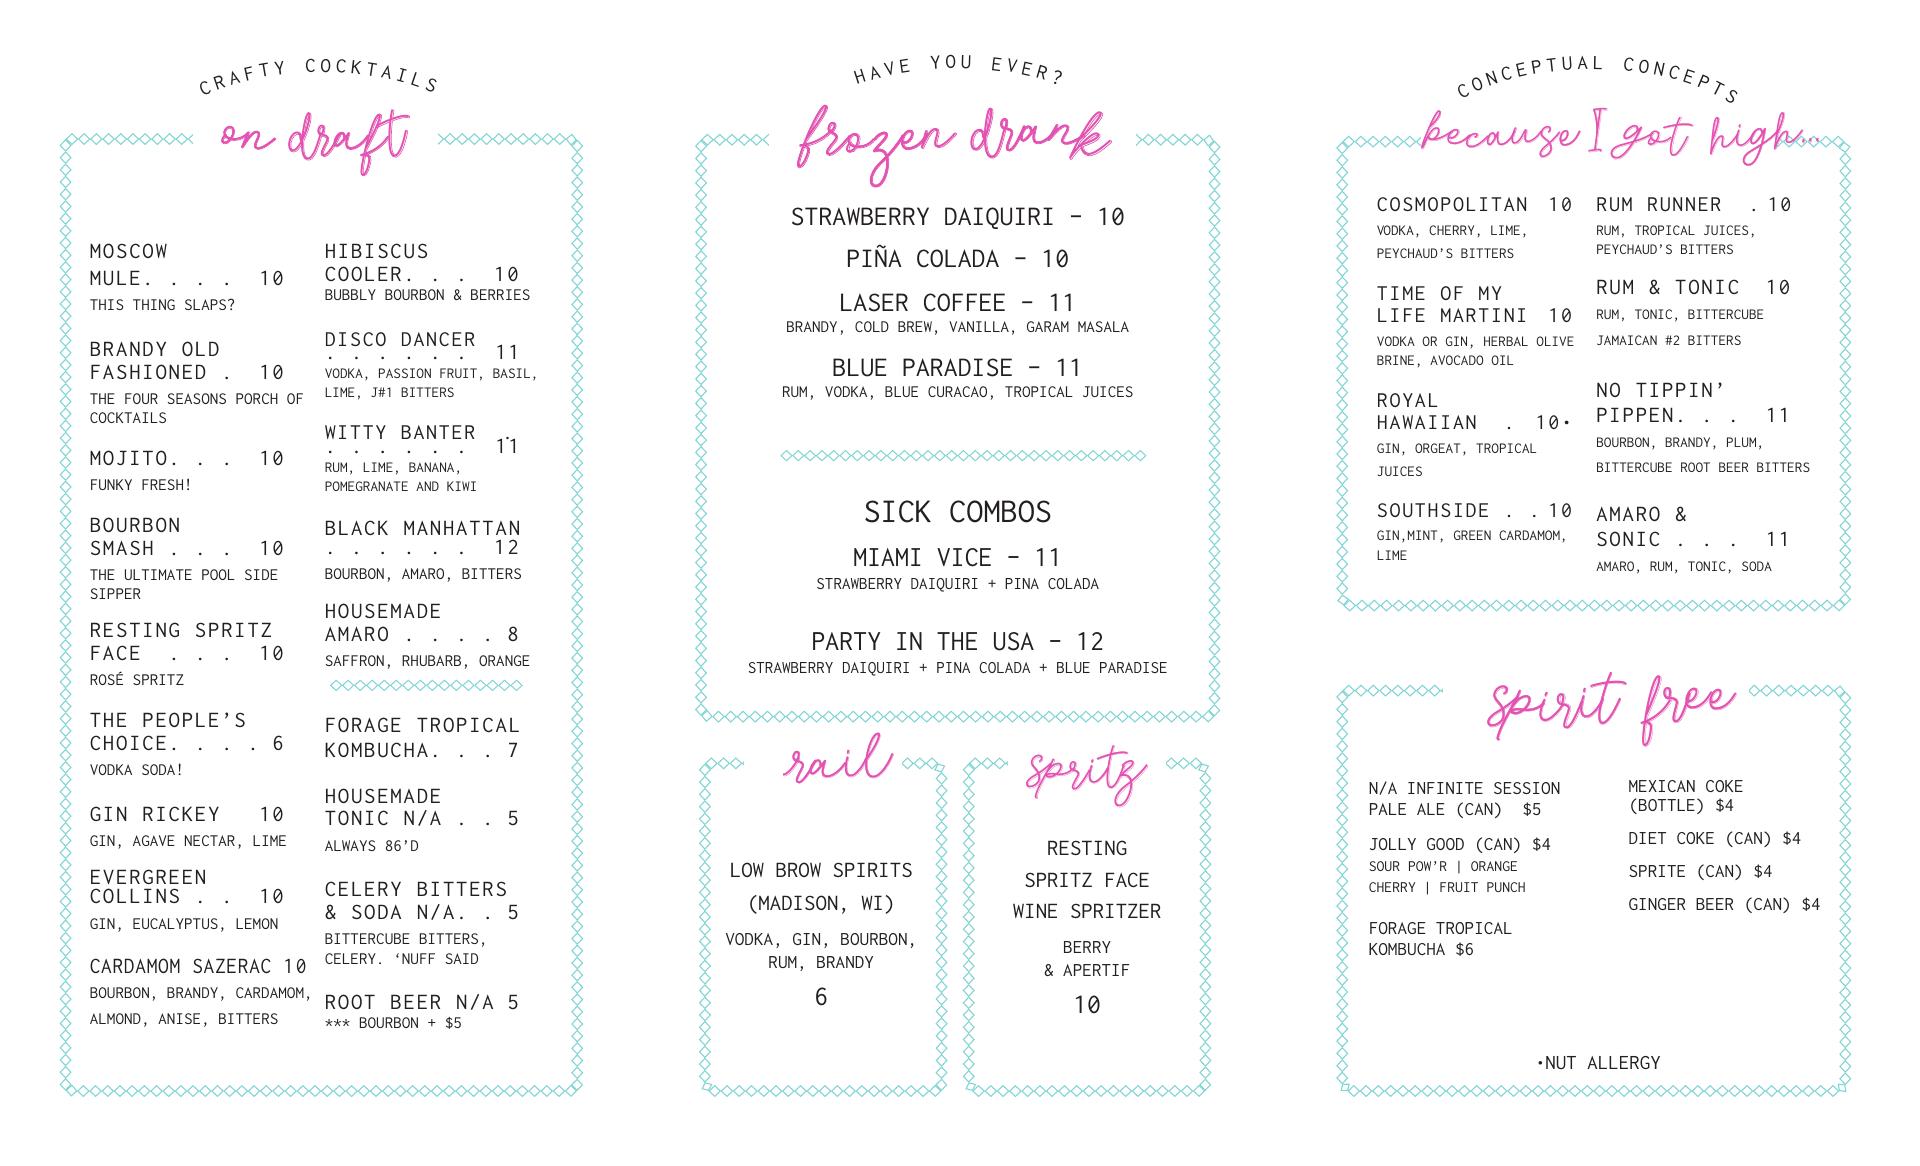 CRAFTY COCKTAILS
on draft
MOSCOW
MULE. . . . 10
THIS THING SLAPS?
BRANDY OLD
FASHIONED . 10
THE FOUR SEASONS PORCH OF
COCKTAILS
MOJITO. . . 10
FUNKY FRESH!
BOURBON
SMASH . . . 10
THE ULTIMATE POOL SIDE
SIPPER
RESTING SPRITZ
FACE . . . 10
ROSÉ SPRITZ
THE PEOPLE'S
CHOICE. . . . 6
VODKA SODA!
GIN RICKEY 10
GIN, AGAVE NECTAR, LIME
EVERGREEN
COLLINS . . 10
GIN, EUCALYPTUS, LEMON
CARDAMOM SAZERAC 10
BOURBON, BRANDY, CARDAMOM,
ALMOND, ANISE, BITTERS
HIBISCUS
COOLER. . . 10
BUBBLY BOURBON & BERRIES
DISCO DANCER
. . . . . . 11
VODKA, PASSION FRUIT, BASIL,
LIME, J#1 BITTERS
WITTY BANTER .
. . . . . . 11
RUM, LIME, BANANA,
POMEGRANATE AND KIWI
BLACK MANHATTAN
. . . . . . 12
BOURBON, AMARO, BITTERS
HOUSEMADE
AMARO . . . . 8
SAFFRON, RHUBARB, ORANGE
FORAGE TROPICAL
KOMBUCHA. . . 7
HOUSEMADE
TONIC N/A . . 5
ALWAYS 86'D
CELERY BITTERS
& SODA N/A. . 5
BITTERCUBE BITTERS,
CELERY. ‘NUFF SAID
ROOT BEER N/A 5
*** BOURBON + $5
HAVE YOU EVER?
frozen drank
STRAWBERRY DAIQUIRI – 10
PIÑA COLADA – 10
LASER COFFEE – 11
BRANDY, COLD BREW, VANILLA, GARAM MASALA
BLUE PARADISE – 11
RUM, VODKA, BLUE CURACAO, TROPICAL JUICES
SICK COMBOS
MIAMI VICE – 11
STRAWBERRY DAIQUIRI + PINA COLADA
PARTY IN THE USA – 12
STRAWBERRY DAIQUIRI + PINA COLADA + BLUE PARADISE
rail
LOW BROW SPIRITS
(MADISON, WI)
VODKA, GIN, BOURBON,
RUM, BRANDY
6
spritz
RESTING
SPRITZ FACE
WINE SPRITZER
BERRY
& APERTIF
10
CONCEPTUAL CONCEPTS
because I got high...
COSMOPOLITAN 10
VODKA, CHERRY, LIME,
PEYCHAUD'S BITTERS
TIME OF MY
LIFE MARTINI 10
VODKA OR GIN, HERBAL OLIVE
BRINE, AVOCADO OIL
ROYAL
HAWAIIAN . 10•
GIN, ORGEAT, TROPICAL
JUICES
SOUTHSIDE . . 10
GIN,MINT, GREEN CARDAMOM,
LIME
RUM RUNNER . 10
RUM, TROPICAL JUICES,
PEYCHAUD'S BITTERS
RUM & TONIC 10
RUM, TONIC, BITTERCUBE
JAMAICAN #2 BITTERS
NO TIPPIN'
PIPPEN. . . 11
BOURBON, BRANDY, PLUM,
BITTERCUBE ROOT BEER BITTERS
AMARO &
SONIC . . . 11
AMARO, RUM, TONIC, SODA
spirit free
N/A INFINITE SESSION
PALE ALE (CAN) $5
JOLLY GOOD (CAN) $4
SOUR POW'R | ORANGE
CHERRY | FRUIT PUNCH
FORAGE TROPICAL
KOMBUCHA $6
MEXICAN COKE
(BOTTLE) $4
DIET COKE (CAN) $4
SPRITE (CAN) $4
GINGER BEER (CAN) $4
•NUT ALLERGY